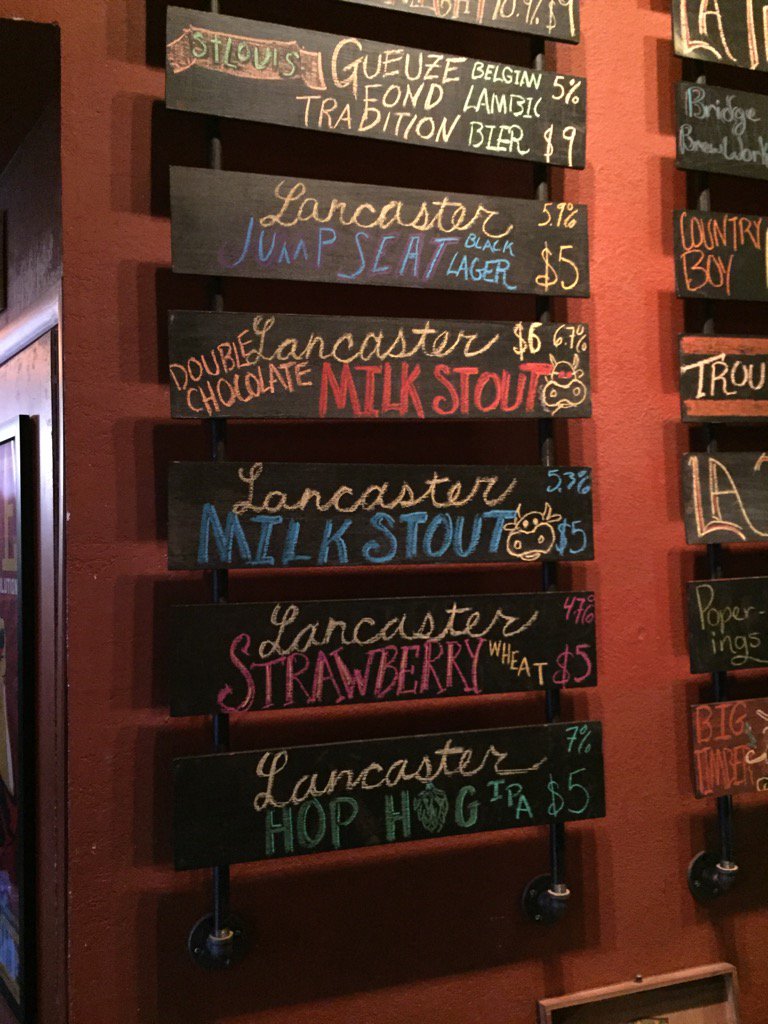 10.9% $9
ST LOUIS GUEUZE BELGIAN 5%
FOND LAMBIC
TRADITION BIER $9
Lancaster 5.9%
JUMP SEAT BLACK LAGER $5
Lancaster $6 6.7%
DOUBLE CHOCOLATE MILK STOUT
Lancaster 5.3%
MILK STOUT $5
Lancaster 4.7%
STRAWBERRY WHEAT $5
Lancaster 7%
HOP HOG IPA $5
LA
Bridge
BrewWork
COUNTRY
BOY
TROU
LA
Poper-
ings
BIG
TIMBER